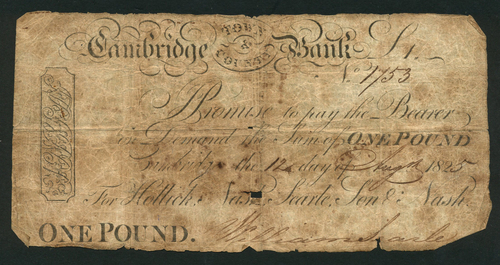 TOWN & COUNTY
Cambridge Bank £1.
No. 1753
I Promise to pay the Bearer
on Demand the Sum of ONE POUND
Cambridge the 12 day of Augst. 1825
For Hollick, Nash, Searle, Son & Nash.
ONE POUND. William Searle